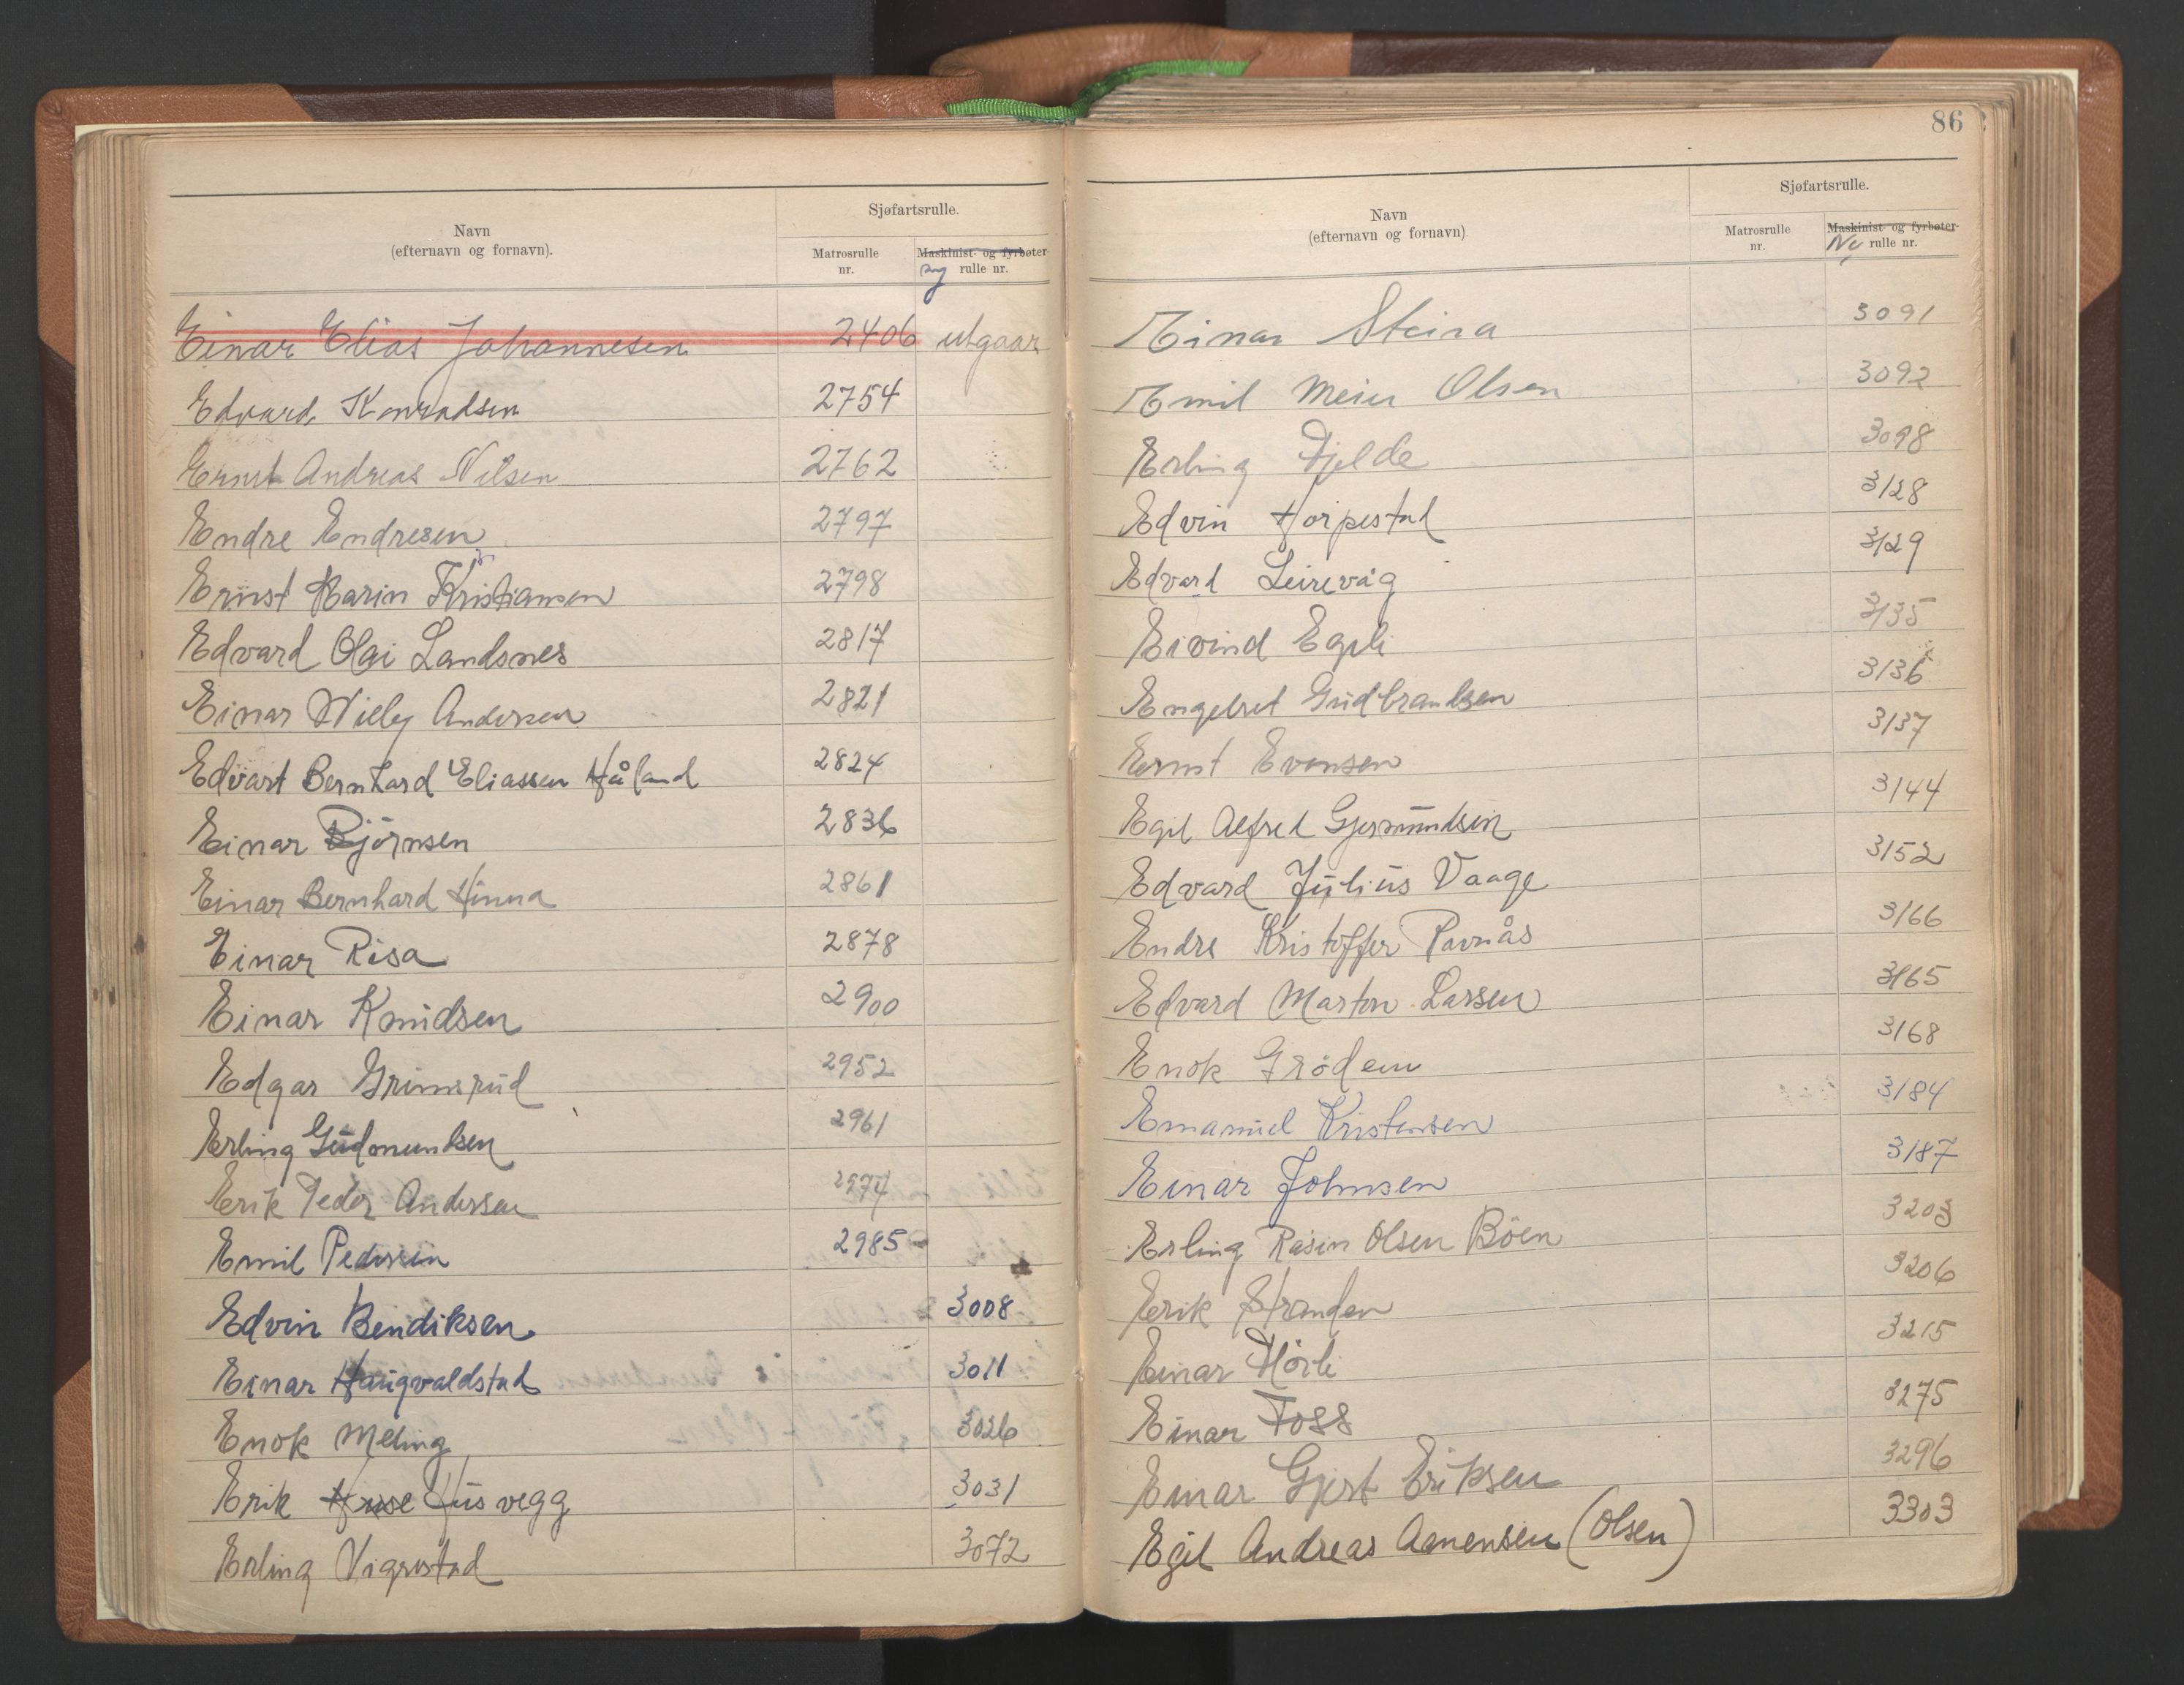 Navn
(efternavn og fornavn).
Sjøfartsrulle.
Matrosrulle
nr.
Maskinist- og fyrbøter-
ny rulle nr.
Einar Elias Johannesen 2406 utgaar
Edvard Konradsen 2754
Ernst Andreas Nilsen 2762
Endre Endresen 2797
Ernst Karin Kristiansen 2798
Edvard Olai Landsnes 2817
Einar Willy Andersen 2821
Edvart Bernhard Eliassen Håland 2824
Einar Björnsen 2836
Einar Bernhard Hinna 2861
Einar Risa 2878
Einar Knudsen 2900
Edgar Grimsrud 2952
Erling Gudmundsen 2961
Erik Peder Andersen 2974
Emil Pedersen 2985
Edvin Bendiksen 3008
Einar Haugvaldstad 3011
Enok Meling 3026
Erik Huse Husvegg 3031
Erling Vigrestad 3072
86
Navn
(efternavn og fornavn).
Sjøfartsrulle.
Matrosrulle
nr.
Maskinist- og fyrbøter-
Ny rulle nr.
Einar Steira 3091
Emil Meier Olsen 3092
Erling Fjelde 3098
Edvin Horpestad 3128
Edvard Leirevåg 3129
Eivind Egeli 3135
Engelret Gudbrandsen 3136
Ernst Evensen 3137
Egil Alfred Gjermundsen 3144
Edvard Julius Vaage 3152
Endre Kristoffer Ravnås 3166
Edvard Marton Larsen 3165
Enok Grödem 3168
Emanuel Kristensen 3184
Einar Johnsen 3187
Erling Rasin Olsen Böen 3203
Erik Stranden 3206
Einar Hörli 3215
Einar Foss 3275
Einar Gjert Eriksen 3296
Egil Andreas Aanensen (Olsen) 3303